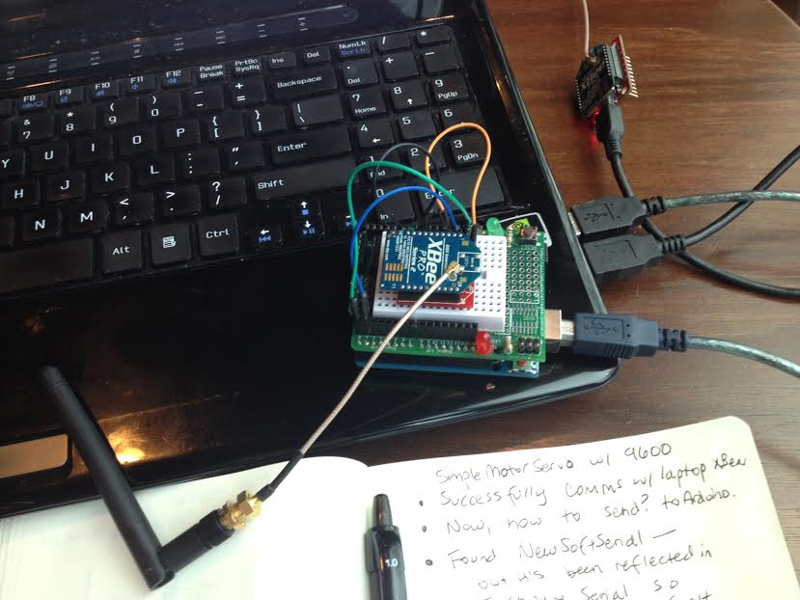 F8 F9 F10 F11 F12 Pause Break PrtSc SysRq Ins Del NumLk ScrLk / *
& 7 * 8 ( 9 ) 0 _ - + = Backspace Del 7 Home 8 9 PgUp +
Y U I O P { [ } ] | \ 4 5 6
H J K L : ; " ' Enter 2 3 PgDn
N M < , > . ? / Shift Enter
Alt Ctrl In
XBee
PRO
Series 2
1.0
Simple Motor Servo w/ 9600
• Successfully comms w/ laptop XBee
• Now, how to send? to Arduino.
• Found NewSoftSerial —
but it's been reflected in
Serial so